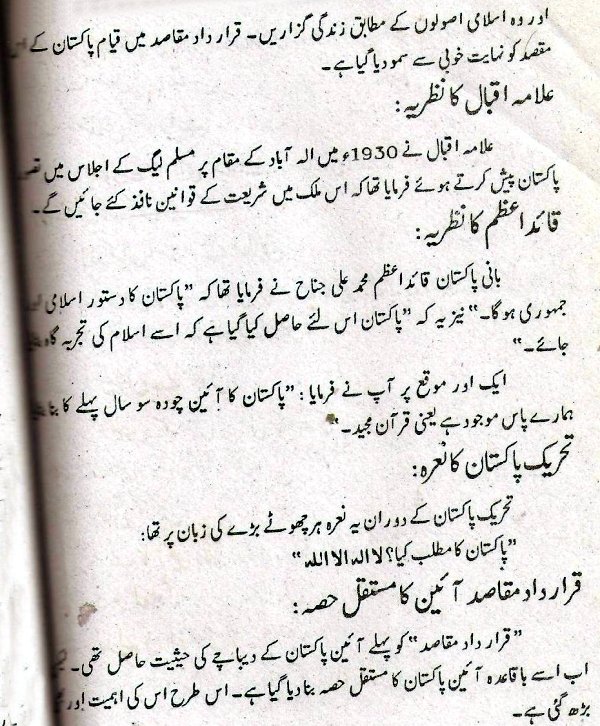 اور وہ اسلامی اصولوں کے مطابق زندگی گزاریں۔ قرار داد مقاصد میں قیام پاکستان کے
مقصد کو نہایت خوبی سے سمو دیا گیا ہے۔
علامہ اقبال کا نظریہ:
علامہ اقبال نے 1930ء میں الہ آباد کے مقام پر مسلم لیگ کے اجلاس میں
پاکستان پیش کرتے ہوئے فرمایا تھا کہ اس ملک میں شریعت کے قوانین نافذ کئے جائیں گے۔
قائد اعظم کا نظریہ:
بانی پاکستان قائد اعظم محمد علی جناح نے فرمایا تھا کہ "پاکستان کا دستور اسلامی
جمہوری ہو گا۔" نیز یہ کہ "پاکستان اس لئے حاصل کیا گیا ہے کہ اسے اسلام کی تجربہ گاہ
جائے۔"
ایک اور موقع پر آپ نے فرمایا: "پاکستان کا آئین چودہ سو سال پہلے کا بنا
ہمارے پاس موجود ہے یعنی قرآن مجید۔"
تحریک پاکستان کا نعرہ:
تحریک پاکستان کے دوران یہ نعرہ ہر چھوٹے بڑے کی زبان پر تھا:
"پاکستان کا مطلب کیا؟ لا الہ الا اللہ"
قرار داد مقاصد آئین کا مستقل حصہ:
"قرار داد مقاصد" کو پہلے آئین پاکستان کے دیباچے کی حیثیت حاصل تھی۔
اب اسے باقاعدہ آئین پاکستان کا مستقل حصہ بنا دیا گیا ہے۔ اس طرح اس کی اہمیت اور
بڑھ گئی ہے۔